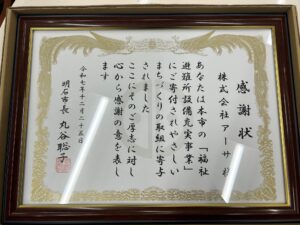 感謝状
株式会社アーサ 様
あなたは本市の「福祉
避難所設備充実事業」
にご寄付されやさしい
まちづくりの取組に寄与
されました
ここにそのご厚志に対し
心から感謝の意を表し
ます
令和七年十二月二十五日
明石市長 丸谷聡子